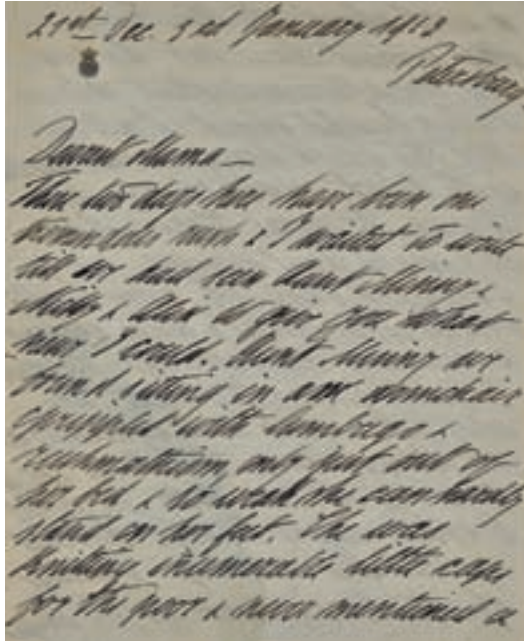 21st Dec 3rd January 1913
Petersburg
Dearest Mama –
These two days here have been one
tremendous rush & I waited to write
till we had seen Aunt Minny,
Nicky & Alix to give you what
news I could. Aunt Minny we
found sitting in an armchair
crippled with lumbago &
rheumatism, only just out of
her bed & so weak she can hardly
stand on her feet. She was
knitting innumerable little caps
for the poor & never mentioned a